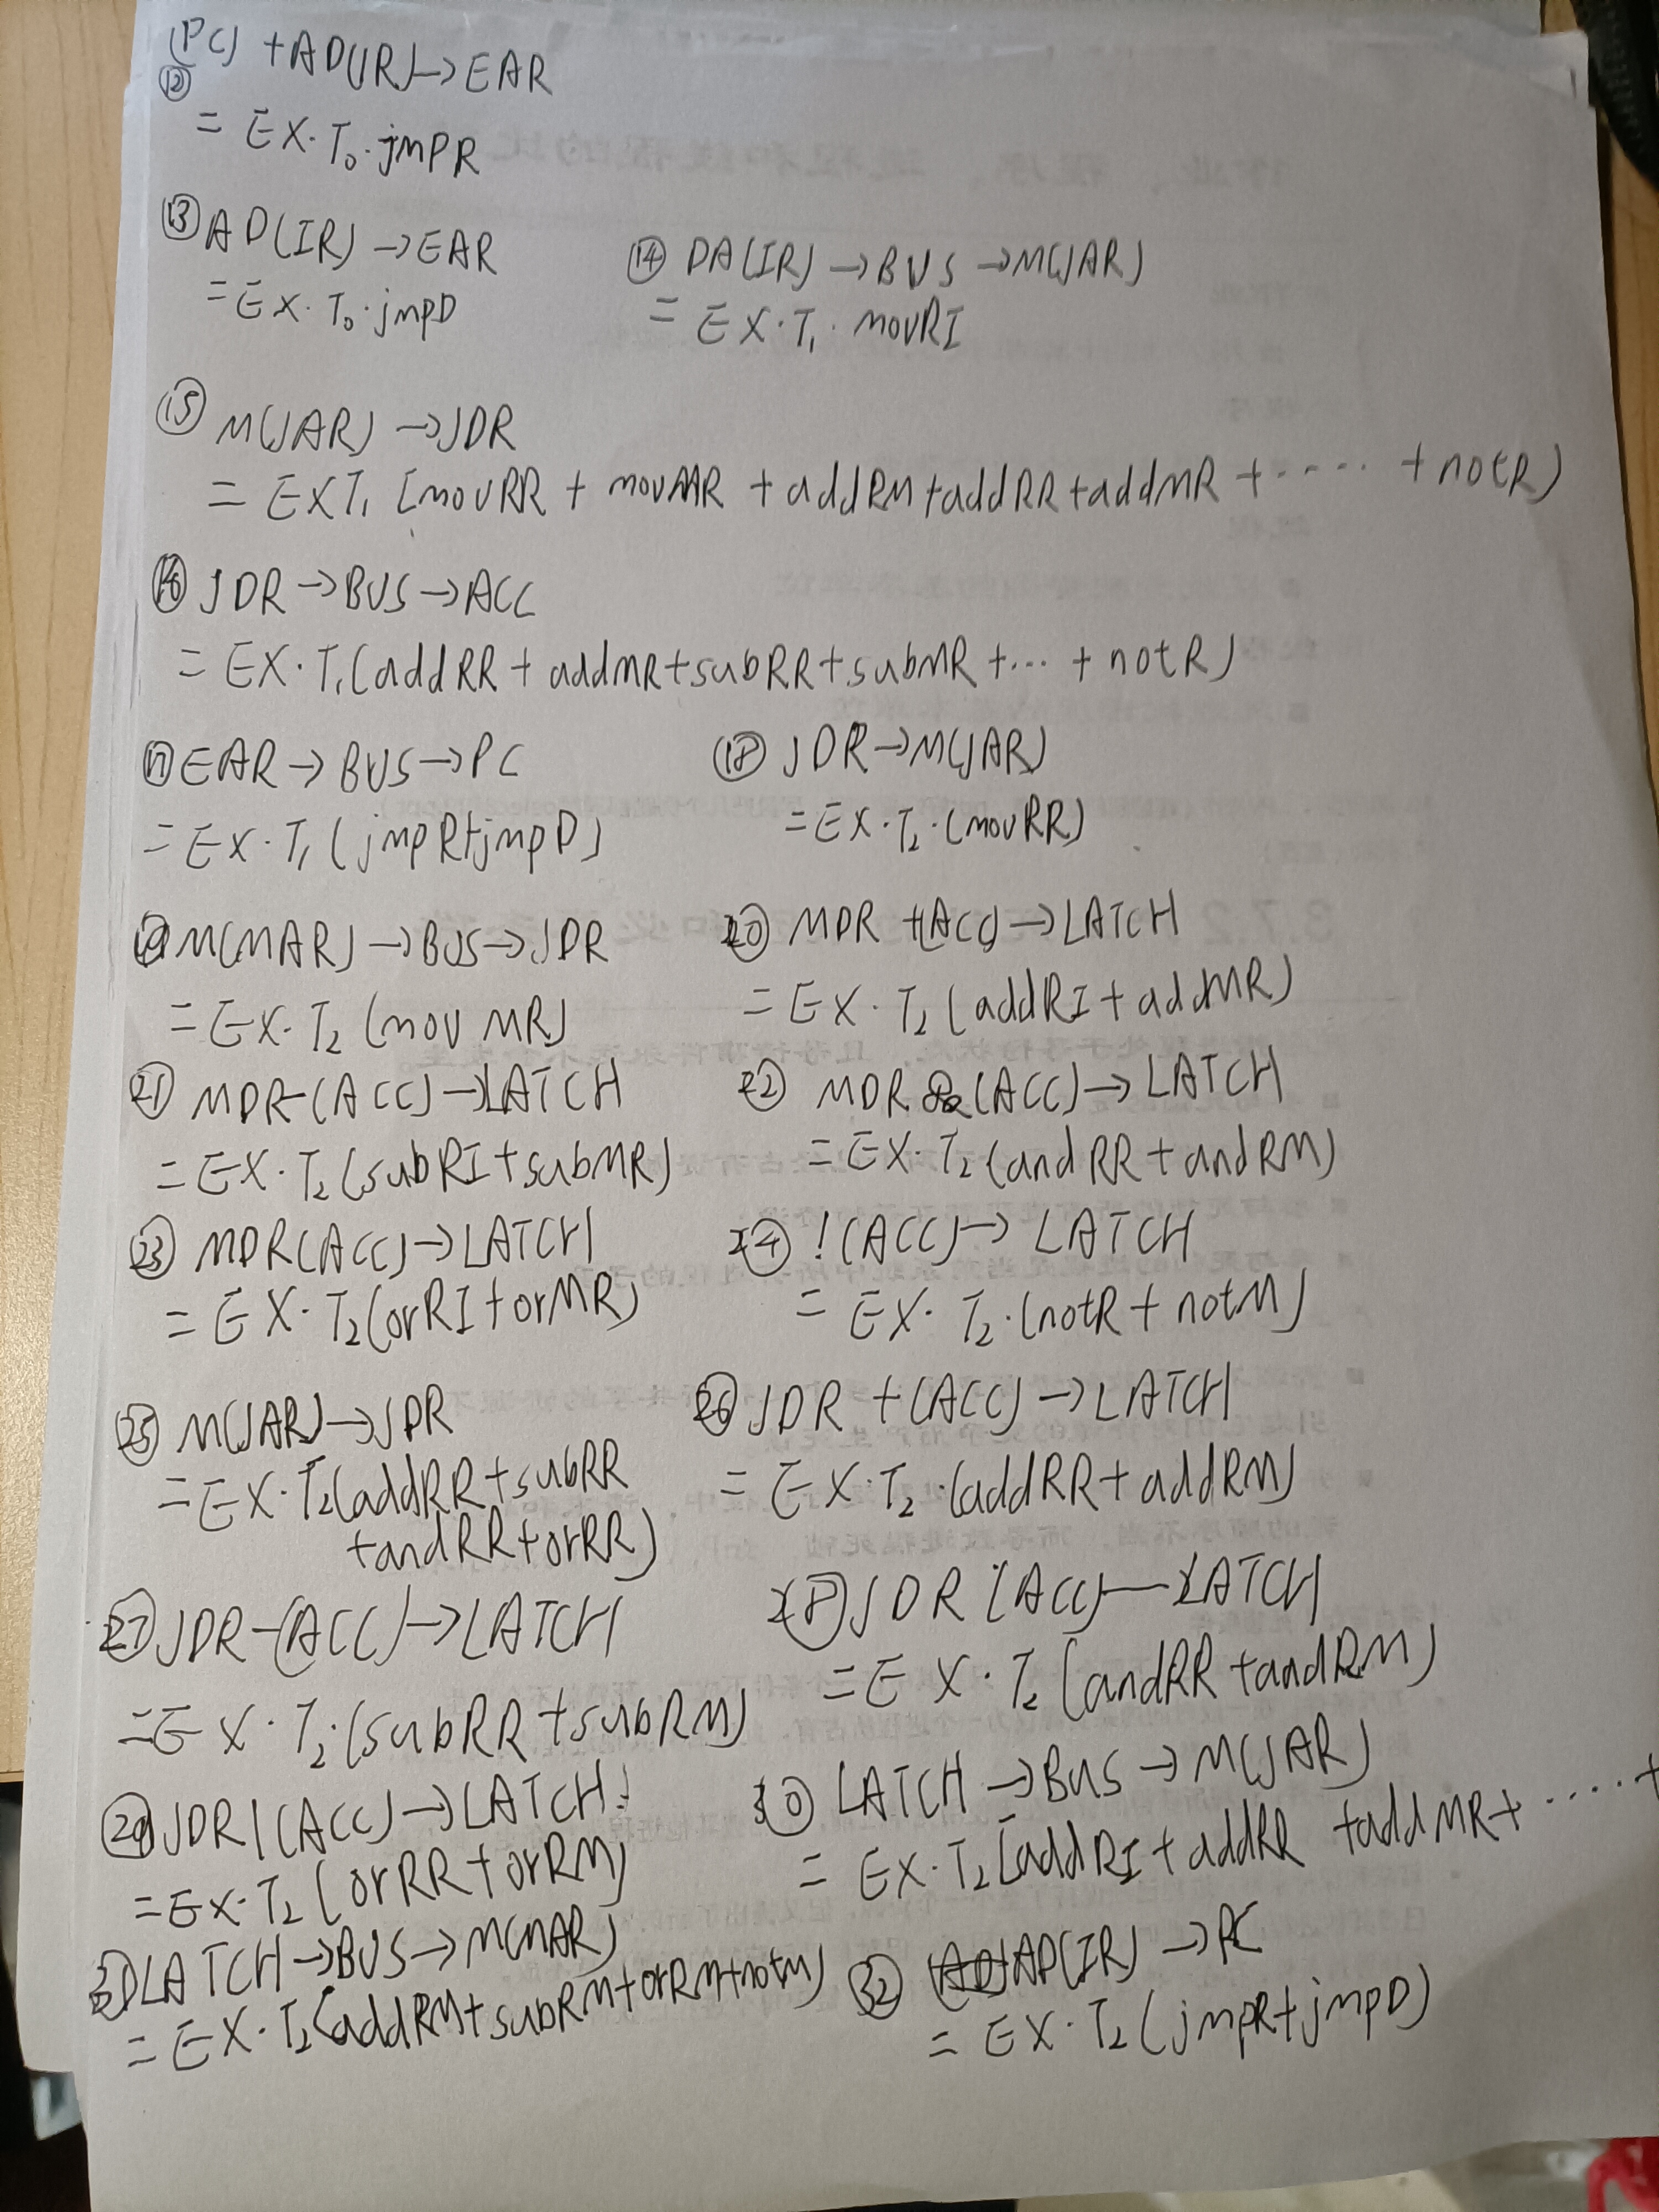 (PC) + AD(IR) → EAR
⑫
= EX·T₀·jmpR
⑬ AD(IR) → EAR
= EX·T₀·jmpD
⑭ DA(IR) → BUS → M(JAR)
= EX·T₁·movRI
⑮ M(JAR) → JDR
= EXT₁ (movRR + movMR + addRM + addRR + addMR + ····· + notR)
⑯ JDR → BUS → ACC
= EX·T₁(addRR + addMR + subRR + subMR + ··· + notR)
⑰ EAR → BUS → PC
= EX·T₁(jmpR+jmpD)
⑱ JDR → M(JAR)
= EX·T₂·(movRR)
⑲ M(MAR) → BUS → JDR
= EX·T₂(movMR)
⑳ MDR +(ACC) → LATCH
= EX·T₂(addRI + addMR)
㉑ MDR-(ACC) → LATCH
= EX·T₂(subRI+subMR)
㉒ MDR &(ACC) → LATCH
= EX·T₂(andRR + andRM)
㉓ MDR(ACC) → LATCH
= EX·T₂(orRI + orMR)
㉔ !(ACC) → LATCH
= EX·T₂·(notR + notM)
㉕ M(JAR) → JDR
= EX·T₂(addRR + subRR
+andRR + orRR)
㉖ JDR +(ACC) → LATCH
= EX·T₂·(addRR + addRM)
㉗ JDR-(ACC) → LATCH
= EX·T₂·(subRR + subRM)
㉘ JDR (ACC) → LATCH
= EX·T₂(andRR + andRM)
㉙ JDR|(ACC) → LATCH
= EX·T₂(orRR + orRM)
㉚ LATCH → BUS → M(JAR)
= EX·T₂(addRI + addRR +addMR + ····· +
㉛ LATCH → BUS → M(MAR)
= EX·T₂(addRM + subRM + orRM + notM)
㉜ AD(IR) → PC
= EX·T₂(jmpR+jmpD)